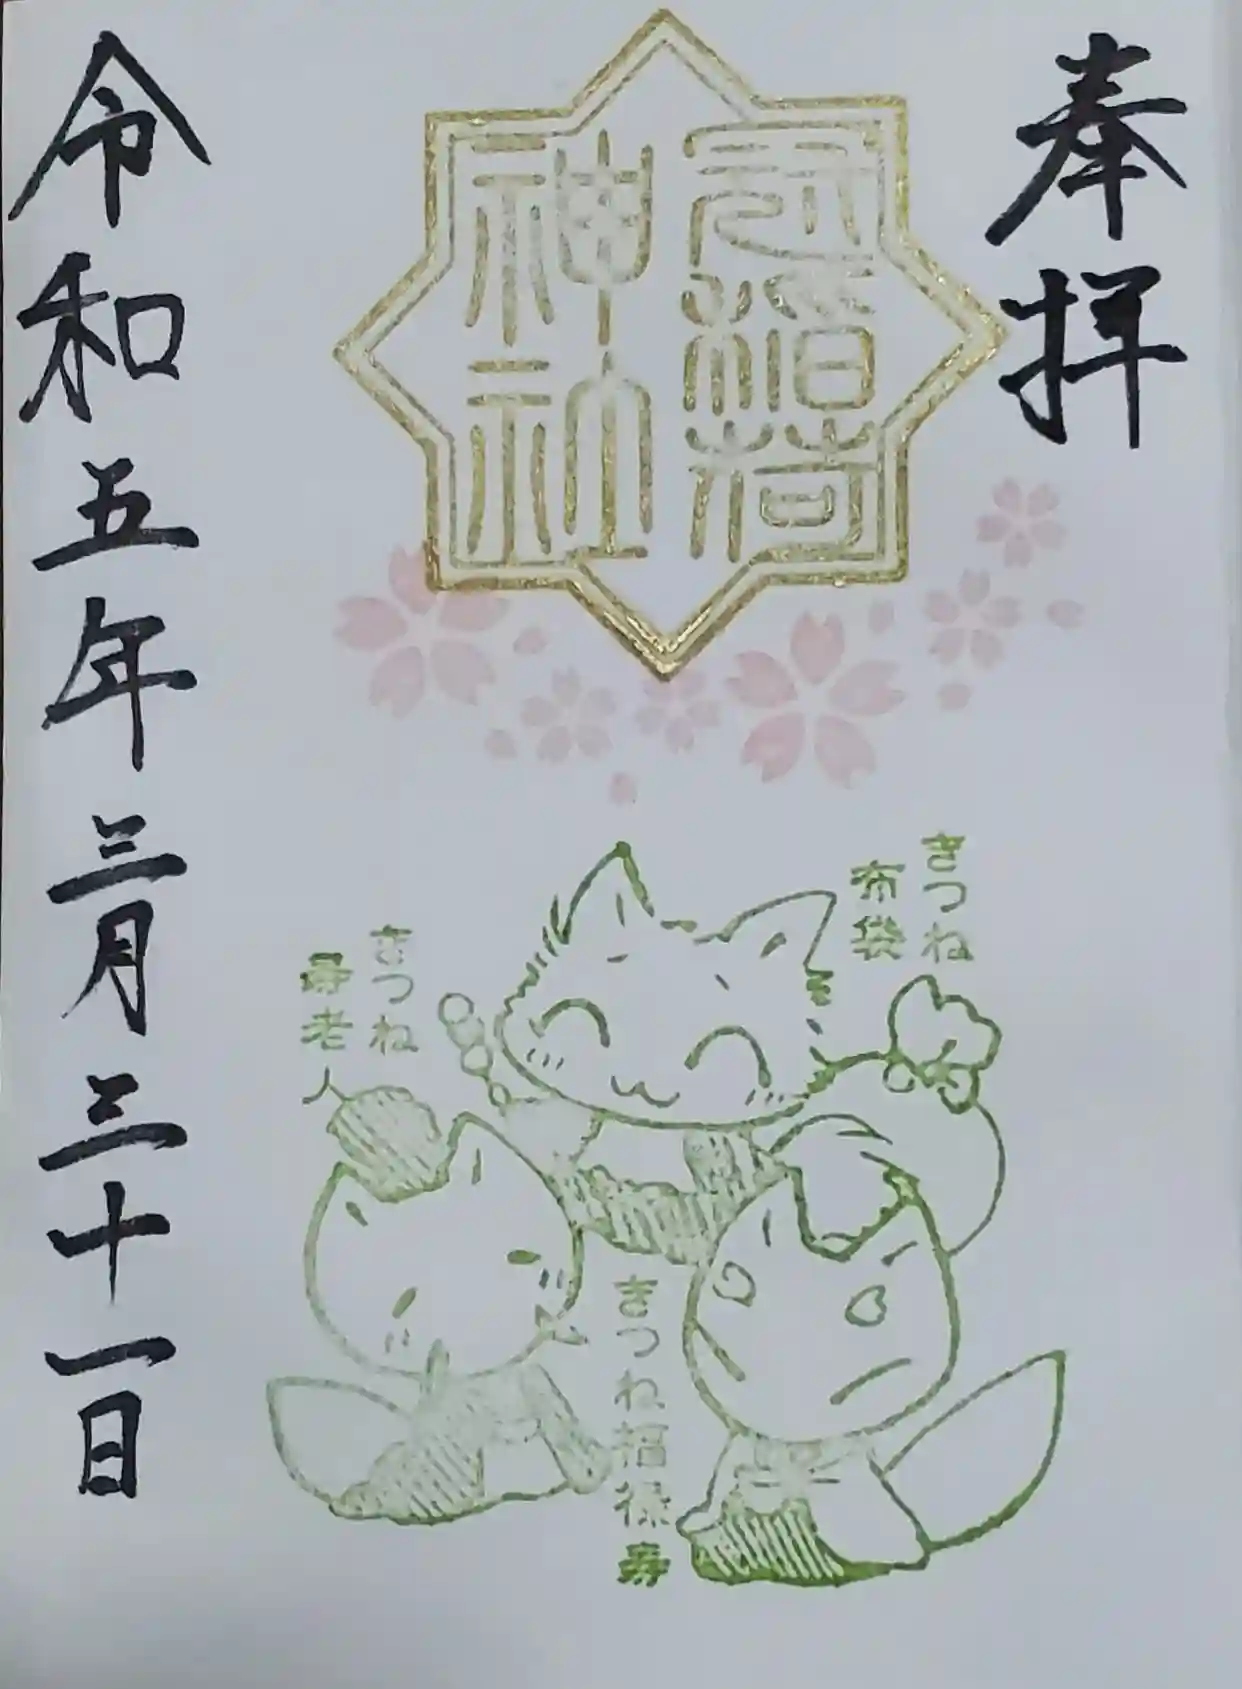 奉拝
冠稲荷
神社
きつね
布袋
きつね
寿老人
きつね福禄寿
令和五年三月三十一日